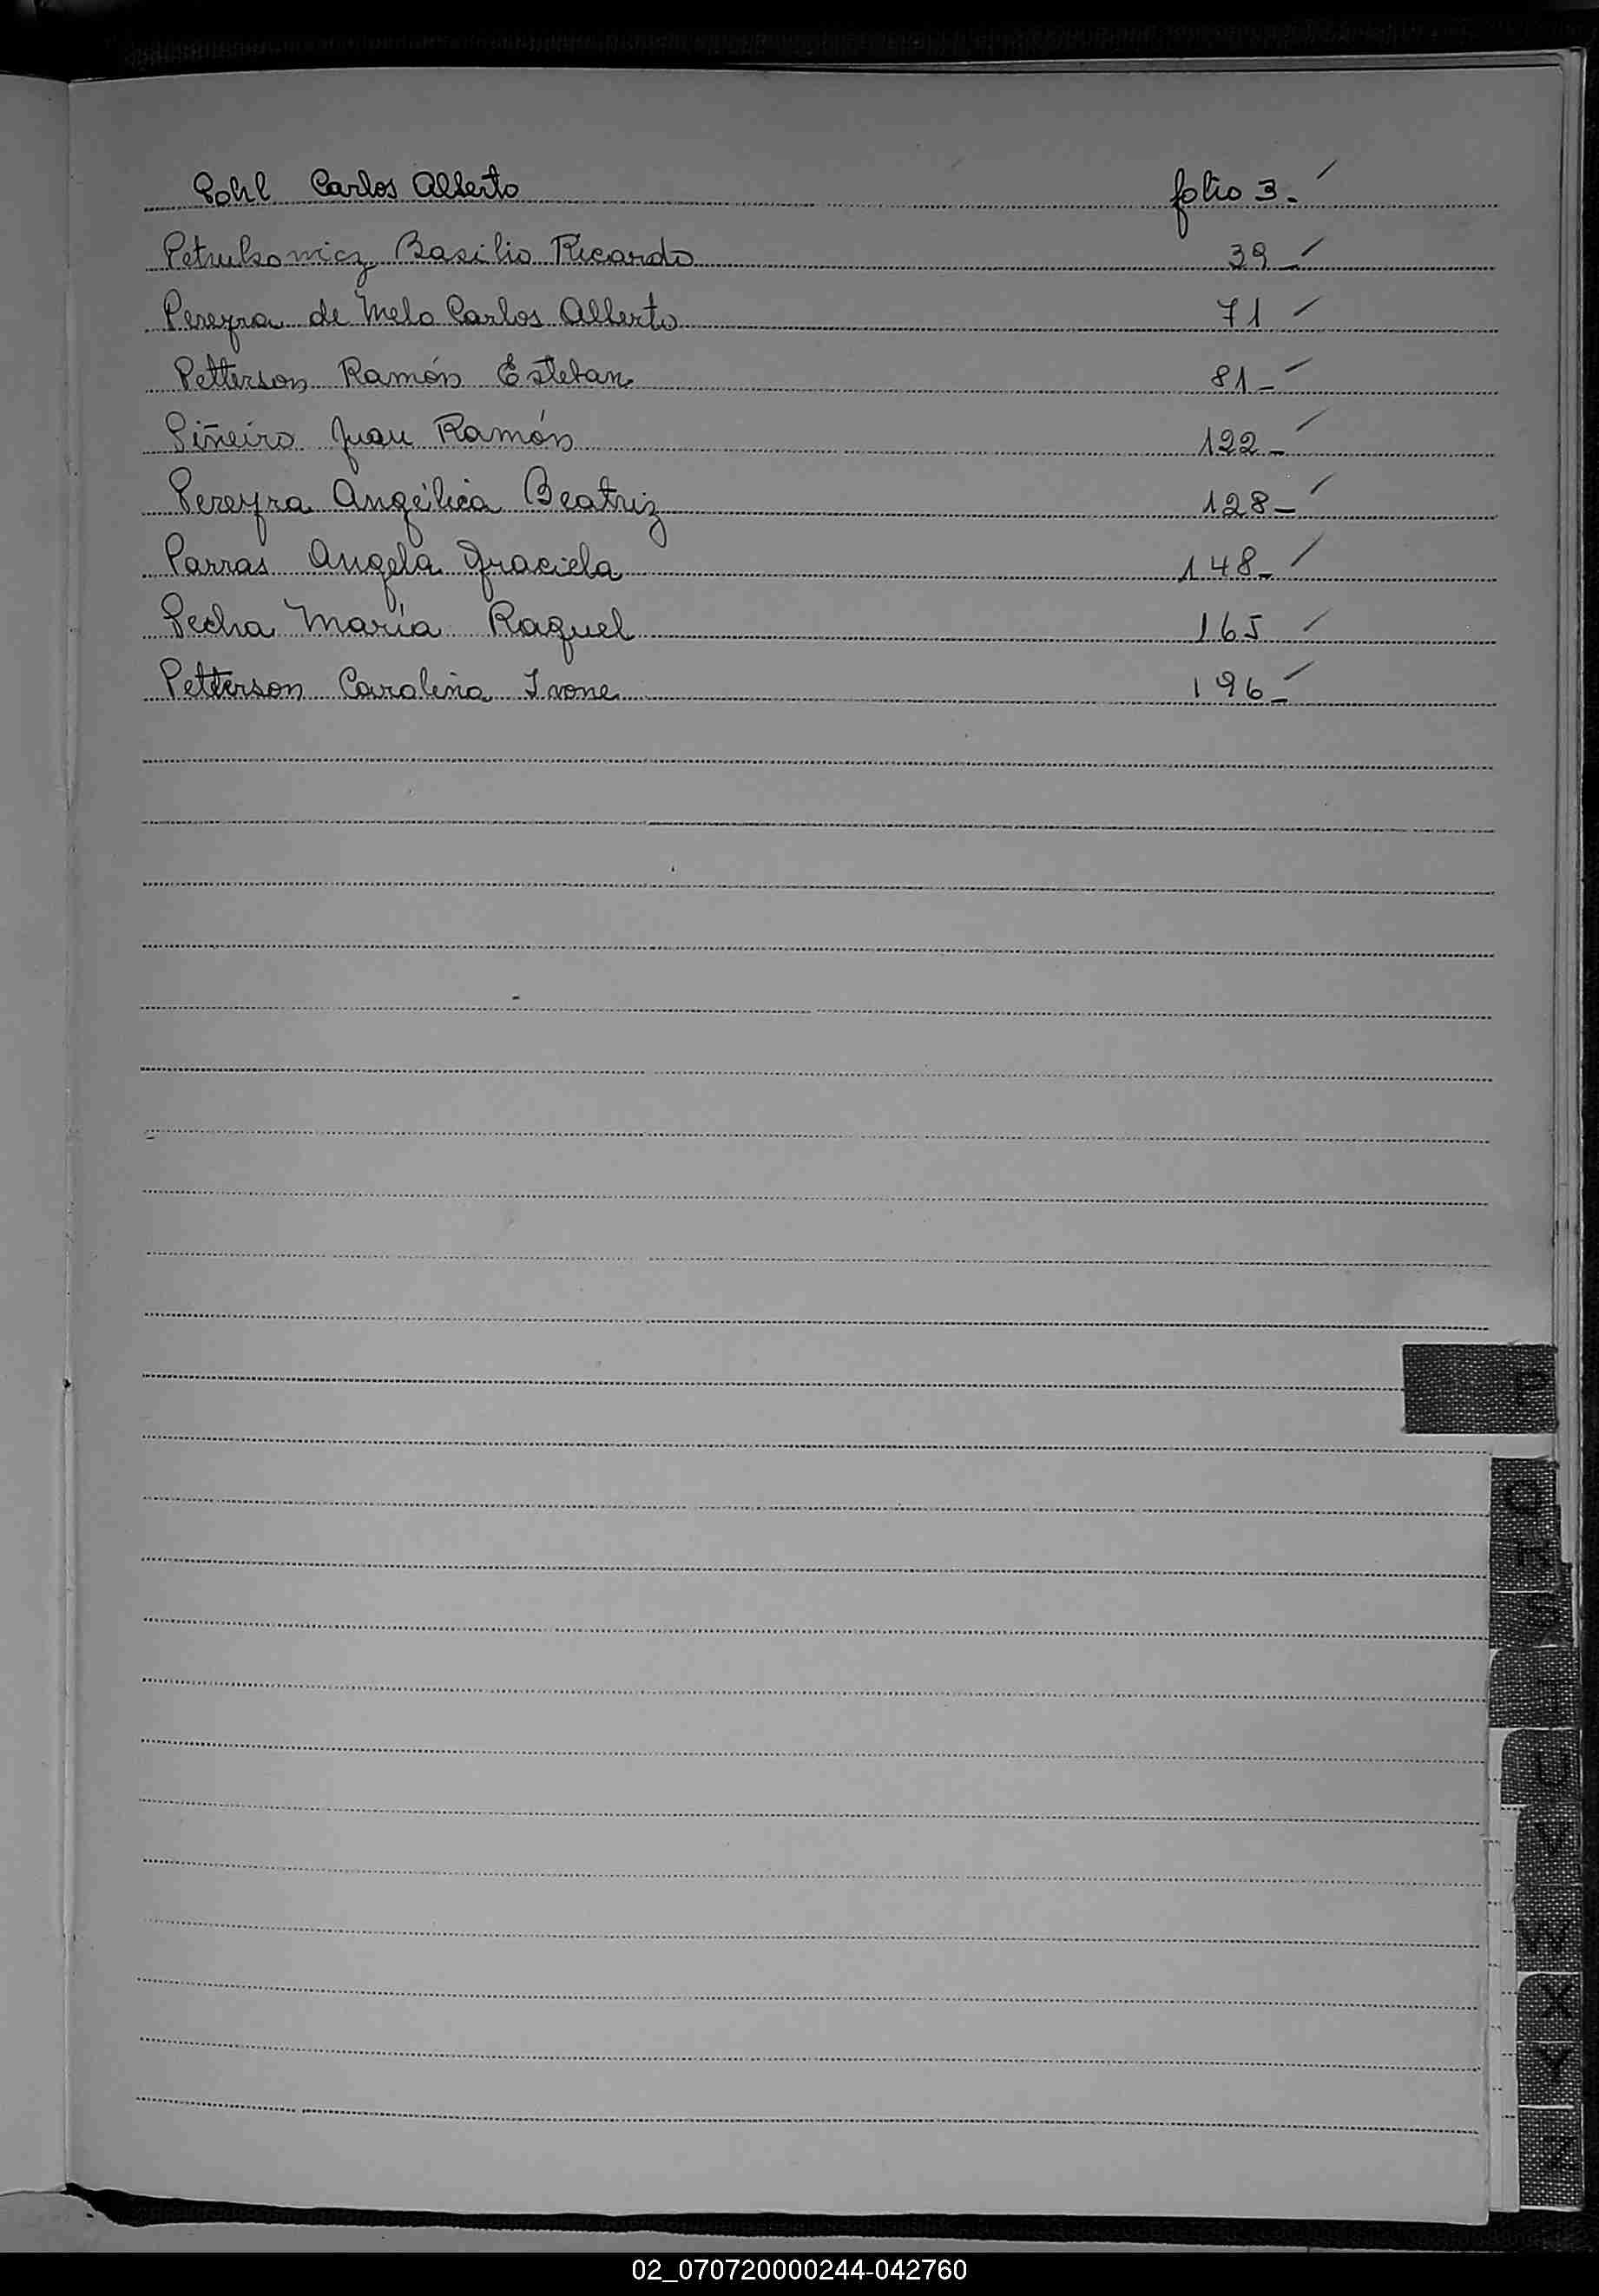 Pohl Carlos Alberto folio 3. /
Petrulsowicz Basilio Ricardo 39 _ /
Pereyra de Melo Carlos Alberto 71 /
Petterson Ramón Esteban 81 _ /
Piñeiro Juan Ramón 122 _ /
Pereyra Angélica Beatriz 128 _ /
Parras Angela Graciela 148 _ /
Pecha María Raquel 165 /
Petterson Carolina Ivone 196 _ /
P
Q
R
S
T
U
V
W
X
Y
Z
02_070720000244-042760